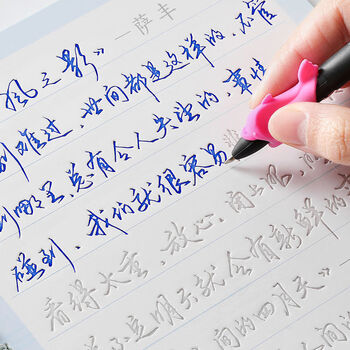 风之影》
—萨丰
别难过，世间都是这样的，不管
到哪里总有令人失望的，事情
碰到，我们就很容易
看得太重，放心，闭上眼，
定明天就会有新鲜的
间的四月天》